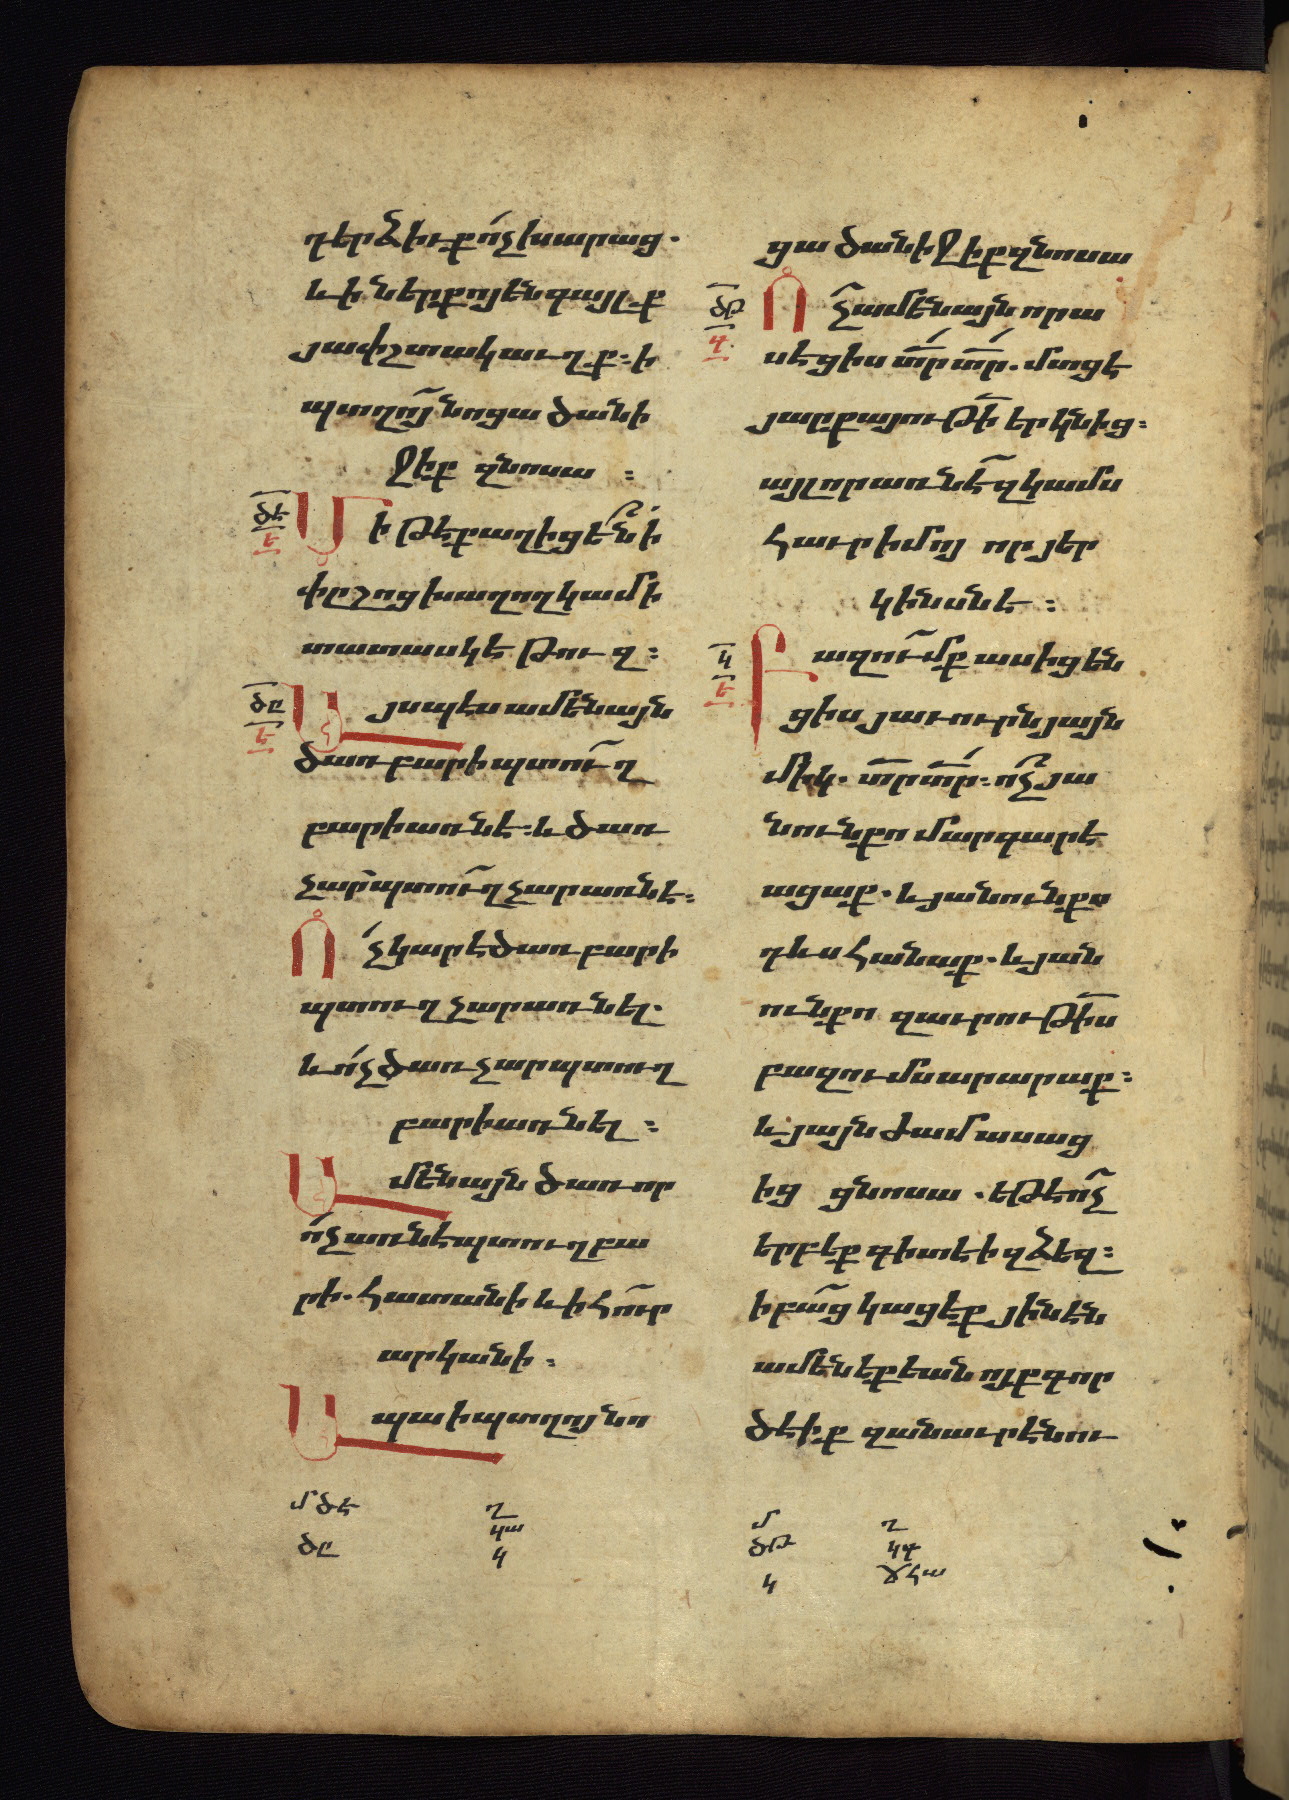 դերձիւք ոչխարաց.
և ի ներքոյ են գայլք
յափշտակաւղք։ ի
պտղոյ նոցա ծանի
ջիք զնոսա ։
ծէ
ե
Մի թէ քաղիցեն ի
փըշոց խաղող կամ ի
տատասկէ թուզ։
ծը
ե
Այսպէս ամենայն
ծառ բարի պտուղ
բարի առնէ։ և ծառ
չար պտուղ չար առնէ։
Ոչ կարէ ծառ բարի
պտուղ չար առնել.
և ոչ ծառ չար պտուղ
բարի առնել ։
Ամենայն ծառ որ
ոչ առնէ պտուղ բա
րի. հատանի և ի հուր
արկանի։
Ապա ի պտղոյ նո
մ ծէ ղ
կա
ծը կ
ցա ծանիջիք զնոսա
ծթ
Ոչ ամենայն որ ա
սէ ցիս տ̅ր տ̅ր. մտցէ
յարքայութի̅ երկնից։
այլ որ առնէ զկամս
հաւր իմոյ որ յեր
կինսն է ։
կ
ե
Բազումք ասիցեն
ցիս յաւուրն յայն
միկ. տ̅ր տ̅ր։ ոչ յա
նուն քո մարգարէ
ացաք. և յանուն քո
դևս հանաք. և յան
ուն քո զաւրութի̅ս
բազումս արարաք։
և յայն ժամ ասաց
ից ցնոսա . եթէ ոչ
երբեք գիտէի զձեզ։
ի բաց կացէք յինէն
ամենեքեան ոյք գոր
ծէիք զանաւրէնու
մ ղ
ծթ կզ
կ ճհա